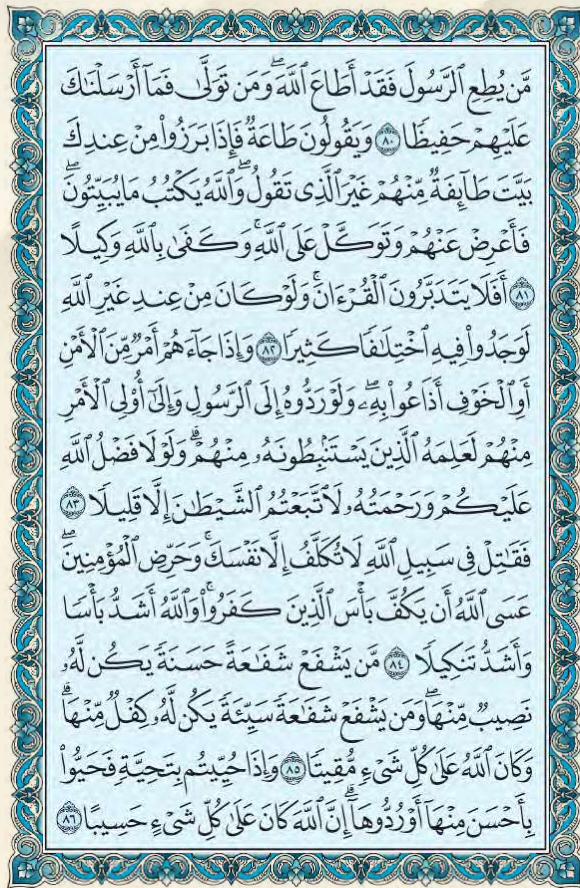 مَّن يُطِعِ ٱلرَّسُولَ فَقَدْ أَطَاعَ ٱللَّهَ ۖ وَمَن تَوَلَّىٰ فَمَآ أَرْسَلْنَٰكَ
عَلَيْهِمْ حَفِيظًا ٨٠ وَيَقُولُونَ طَاعَةٌ فَإِذَا بَرَزُوا۟ مِنْ عِندِكَ
بَيَّتَ طَآئِفَةٌ مِّنْهُمْ غَيْرَ ٱلَّذِى تَقُولُ ۖ وَٱللَّهُ يَكْتُبُ مَا يُبَيِّتُونَ ۖ
فَأَعْرِضْ عَنْهُمْ وَتَوَكَّلْ عَلَى ٱللَّهِ ۚ وَكَفَىٰ بِٱللَّهِ وَكِيلًا
٨١ أَفَلَا يَتَدَبَّرُونَ ٱلْقُرْءَانَ ۚ وَلَوْ كَانَ مِنْ عِندِ غَيْرِ ٱللَّهِ
لَوَجَدُوا۟ فِيهِ ٱخْتِلَٰفًا كَثِيرًا ٨٢ وَإِذَا جَآءَهُمْ أَمْرٌ مِّنَ ٱلْأَمْنِ
أَوِ ٱلْخَوْفِ أَذَاعُوا۟ بِهِۦ ۖ وَلَوْ رَدُّوهُ إِلَى ٱلرَّسُولِ وَإِلَىٰٓ أُو۟لِى ٱلْأَمْرِ
مِنْهُمْ لَعَلِمَهُ ٱلَّذِينَ يَسْتَنۢبِطُونَهُۥ مِنْهُمْ ۗ وَلَوْلَا فَضْلُ ٱللَّهِ
عَلَيْكُمْ وَرَحْمَتُهُۥ لَٱتَّبَعْتُمُ ٱلشَّيْطَٰنَ إِلَّا قَلِيلًا ٨٣
فَقَٰتِلْ فِى سَبِيلِ ٱللَّهِ لَا تُكَلَّفُ إِلَّا نَفْسَكَ ۚ وَحَرِّضِ ٱلْمُؤْمِنِينَ ۖ
عَسَى ٱللَّهُ أَن يَكُفَّ بَأْسَ ٱلَّذِينَ كَفَرُوا۟ ۚ وَٱللَّهُ أَشَدُّ بَأْسًا
وَأَشَدُّ تَنكِيلًا ٨٤ مَّن يَشْفَعْ شَفَٰعَةً حَسَنَةً يَكُن لَّهُۥ
نَصِيبٌ مِّنْهَا ۖ وَمَن يَشْفَعْ شَفَٰعَةً سَيِّئَةً يَكُن لَّهُۥ كِفْلٌ مِّنْهَا ۗ
وَكَانَ ٱللَّهُ عَلَىٰ كُلِّ شَىْءٍ مُّقِيتًا ٨٥ وَإِذَا حُيِّيتُم بِتَحِيَّةٍ فَحَيُّوا۟
بِأَحْسَنَ مِنْهَآ أَوْ رُدُّوهَآ ۗ إِنَّ ٱللَّهَ كَانَ عَلَىٰ كُلِّ شَىْءٍ حَسِيبًا ٨٦